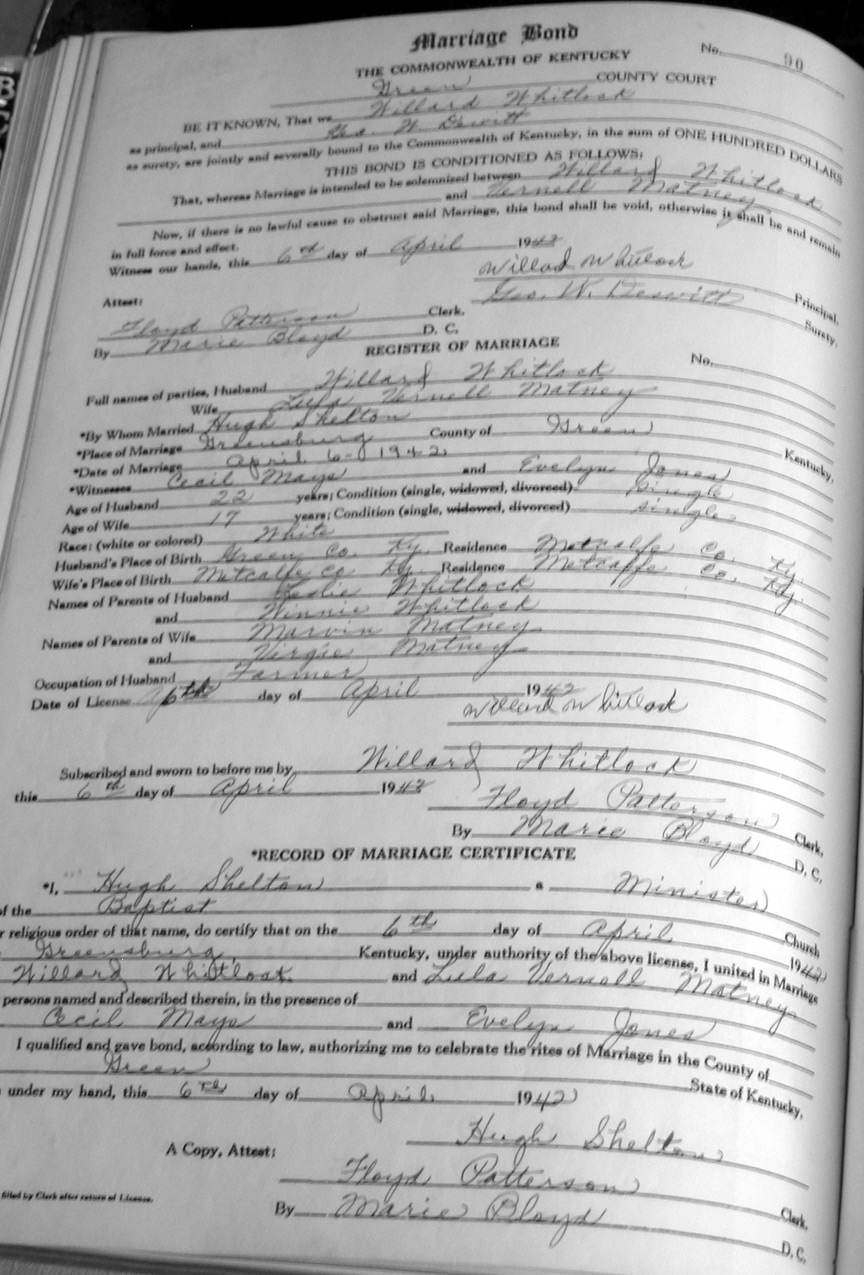 Marriage Bond
No. 90
THE COMMONWEALTH OF KENTUCKY
Green COUNTY COURT
BE IT KNOWN, That we Willard Whitlock
as principal, and Geo. W. Dewitt
as surety, are jointly and severally bound to the Commonwealth of Kentucky, in the sum of ONE HUNDRED DOLLARS
THIS BOND IS CONDITIONED AS FOLLOWS:
That, whereas Marriage is intended to be solemnized between Willard Whitlock
and Vernell Matney
Now, if there is no lawful cause to obstruct said Marriage, this bond shall be void, otherwise it shall be and remain
in full force and effect.
Witness our hands, this 6th day of April 1942
Willard Whitlock
Principal.
Attest: Geo. W. Dewitt
Surety.
Floyd Patterson Clerk.
By Marie Bloyd D. C.
REGISTER OF MARRIAGE
No.
Full names of parties, Husband Willard Whitlock
Wife Lula Vernell Matney
*By Whom Married Hugh Shelton
*Place of Marriage Greensburg County of Green Kentucky.
*Date of Marriage April 6-1942
*Witnesses Cecil Mays and Evelyn Jones
Age of Husband 22 years; Condition (single, widowed, divorced) single
Age of Wife 17 years; Condition (single, widowed, divorced) single
Race: (white or colored) White
Husband's Place of Birth Green Co. Ky. Residence Metcalfe Co. Ky.
Wife's Place of Birth Metcalfe Co Ky. Residence Metcalfe Co. Ky.
Names of Parents of Husband Leslie Whitlock
and Winnie Whitlock
Names of Parents of Wife Marvin Matney
and Virgie Matney
Occupation of Husband Farmer
Date of License 6th day of April 1942
Willard Whitlock
Subscribed and sworn to before me by Willard Whitlock
this 6th day of April 1942
Floyd Patterson Clerk.
By Marie Bloyd D. C.
*RECORD OF MARRIAGE CERTIFICATE
*I, Hugh Shelton a Minister
of the Baptist Church
r religious order of that name, do certify that on the 6th day of April 1942
Greensburg, Kentucky, under authority of the above license, I united in Marriage
Willard Whitlock and Lula Vernell Matney
persons named and described therein, in the presence of
Cecil Mays and Evelyn Jones
I qualified and gave bond, according to law, authorizing me to celebrate the rites of Marriage in the County of
Green State of Kentucky.
under my hand, this 6th day of April 1942
Hugh Shelton
A Copy, Attest:
Floyd Patterson Clerk.
filled by Clerk after return of License.
By Marie Bloyd D. C.